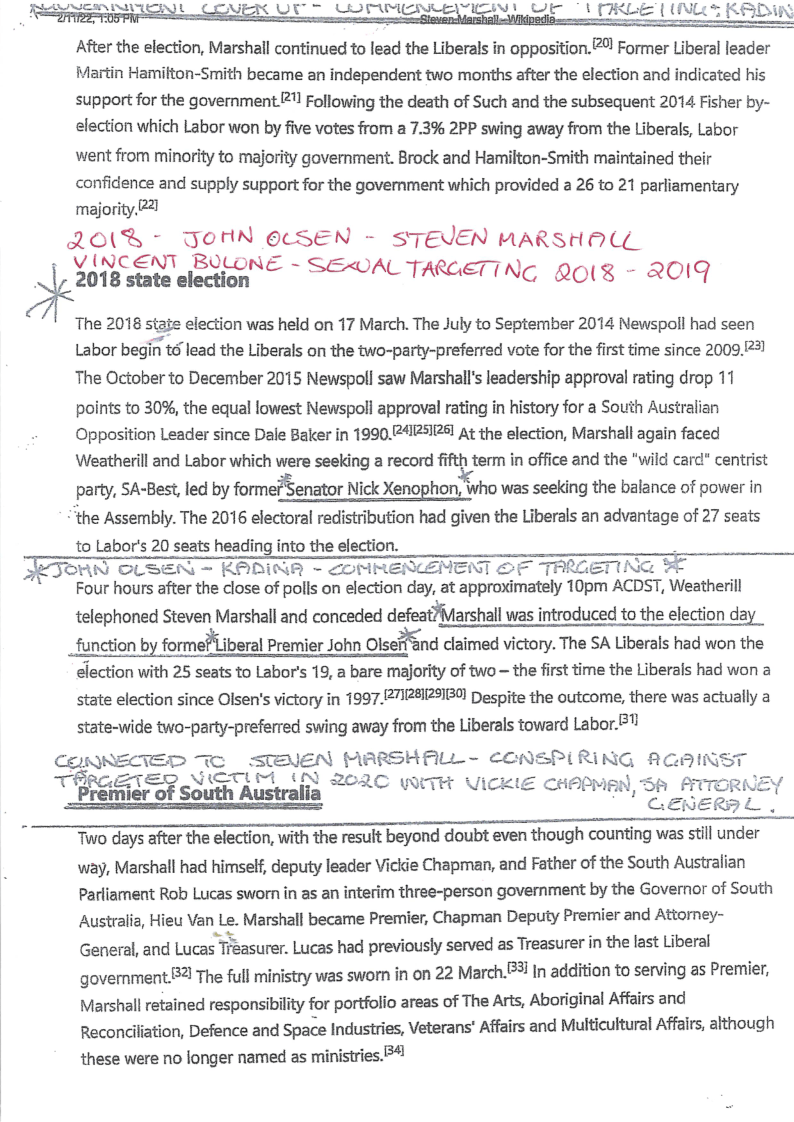 GOVERNMENT COVER UP - COMMENCEMENT OF TARGETING - KADIN
2/11/22, 1:05 PM Steven Marshall - Wikipedia
After the election, Marshall continued to lead the Liberals in opposition.[20] Former Liberal leader
Martin Hamilton-Smith became an independent two months after the election and indicated his
support for the government.[21] Following the death of Such and the subsequent 2014 Fisher by-
election which Labor won by five votes from a 7.3% 2PP swing away from the Liberals, Labor
went from minority to majority government. Brock and Hamilton-Smith maintained their
confidence and supply support for the government which provided a 26 to 21 parliamentary
majority.[22]
2018 - JOHN OLSEN - STEVEN MARSHALL
VINCENT BULONE - SEXUAL TARGETING 2018 - 2019
2018 state election
The 2018 state election was held on 17 March. The July to September 2014 Newspoll had seen
Labor begin to lead the Liberals on the two-party-preferred vote for the first time since 2009.[23]
The October to December 2015 Newspoll saw Marshall's leadership approval rating drop 11
points to 30%, the equal lowest Newspoll approval rating in history for a South Australian
Opposition Leader since Dale Baker in 1990.[24][25][26] At the election, Marshall again faced
Weatherill and Labor which were seeking a record fifth term in office and the "wild card" centrist
party, SA-Best, led by former Senator Nick Xenophon, who was seeking the balance of power in
the Assembly. The 2016 electoral redistribution had given the Liberals an advantage of 27 seats
to Labor's 20 seats heading into the election.
JOHN OLSEN - KADINA - COMMENCEMENT OF TARGETING
Four hours after the close of polls on election day, at approximately 10pm ACDST, Weatherill
telephoned Steven Marshall and conceded defeat. Marshall was introduced to the election day
function by former Liberal Premier John Olsen and claimed victory. The SA Liberals had won the
election with 25 seats to Labor's 19, a bare majority of two – the first time the Liberals had won a
state election since Olsen's victory in 1997.[27][28][29][30] Despite the outcome, there was actually a
state-wide two-party-preferred swing away from the Liberals toward Labor.[31]
CONNECTED TO STEVEN MARSHALL - CONSPIRING AGAINST
TARGETED VICTIM IN 2020 WITH VICKIE CHAPMAN, SA ATTORNEY
GENERAL.
Premier of South Australia
Two days after the election, with the result beyond doubt even though counting was still under
way, Marshall had himself, deputy leader Vickie Chapman, and Father of the South Australian
Parliament Rob Lucas sworn in as an interim three-person government by the Governor of South
Australia, Hieu Van Le. Marshall became Premier, Chapman Deputy Premier and Attorney-
General, and Lucas Treasurer. Lucas had previously served as Treasurer in the last Liberal
government.[32] The full ministry was sworn in on 22 March.[33] In addition to serving as Premier,
Marshall retained responsibility for portfolio areas of The Arts, Aboriginal Affairs and
Reconciliation, Defence and Space Industries, Veterans' Affairs and Multicultural Affairs, although
these were no longer named as ministries.[34]